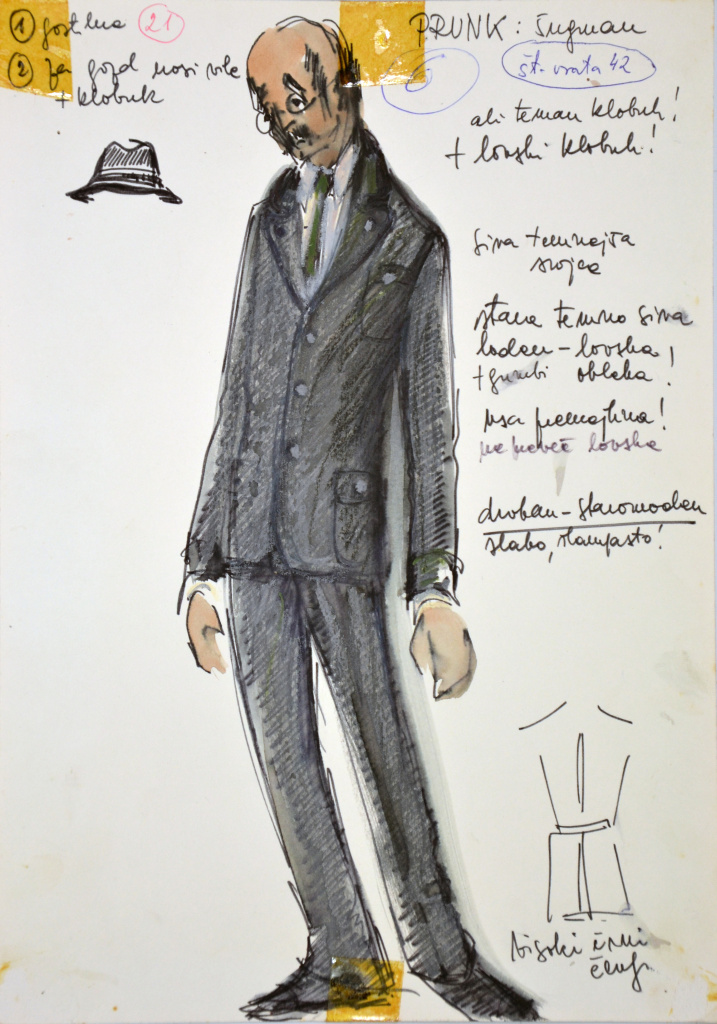 ① gostilna 21
② za gozd nosi vile
+ klobuk
PRUNK: Šugman
št. vrata 42
ali teman klobuk!
+ lovski klobuk!
siva temnejša
srajca
stara temno siva
loden - lovska
+ gumbi obleka!
vsa premajhna!
ne preveč lovska
droban - staromoden
slabo, štamfasto!
visoki črni
čevlji